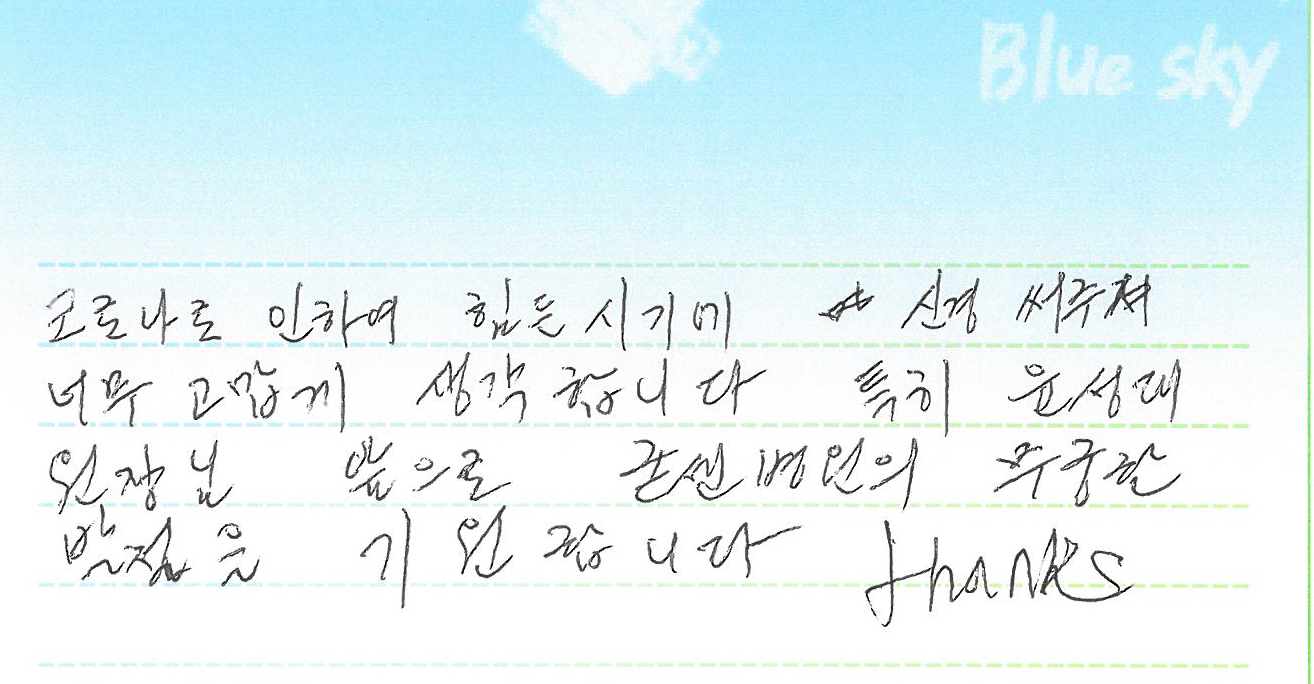 Blue sky
코로나로 인하여 힘든시기에 신경 써주져
너무 고맙게 생각 합니다 특히 윤성대
원장님 앞으로 굿센병원의 무궁한
발전을 기원 합니다 thanks